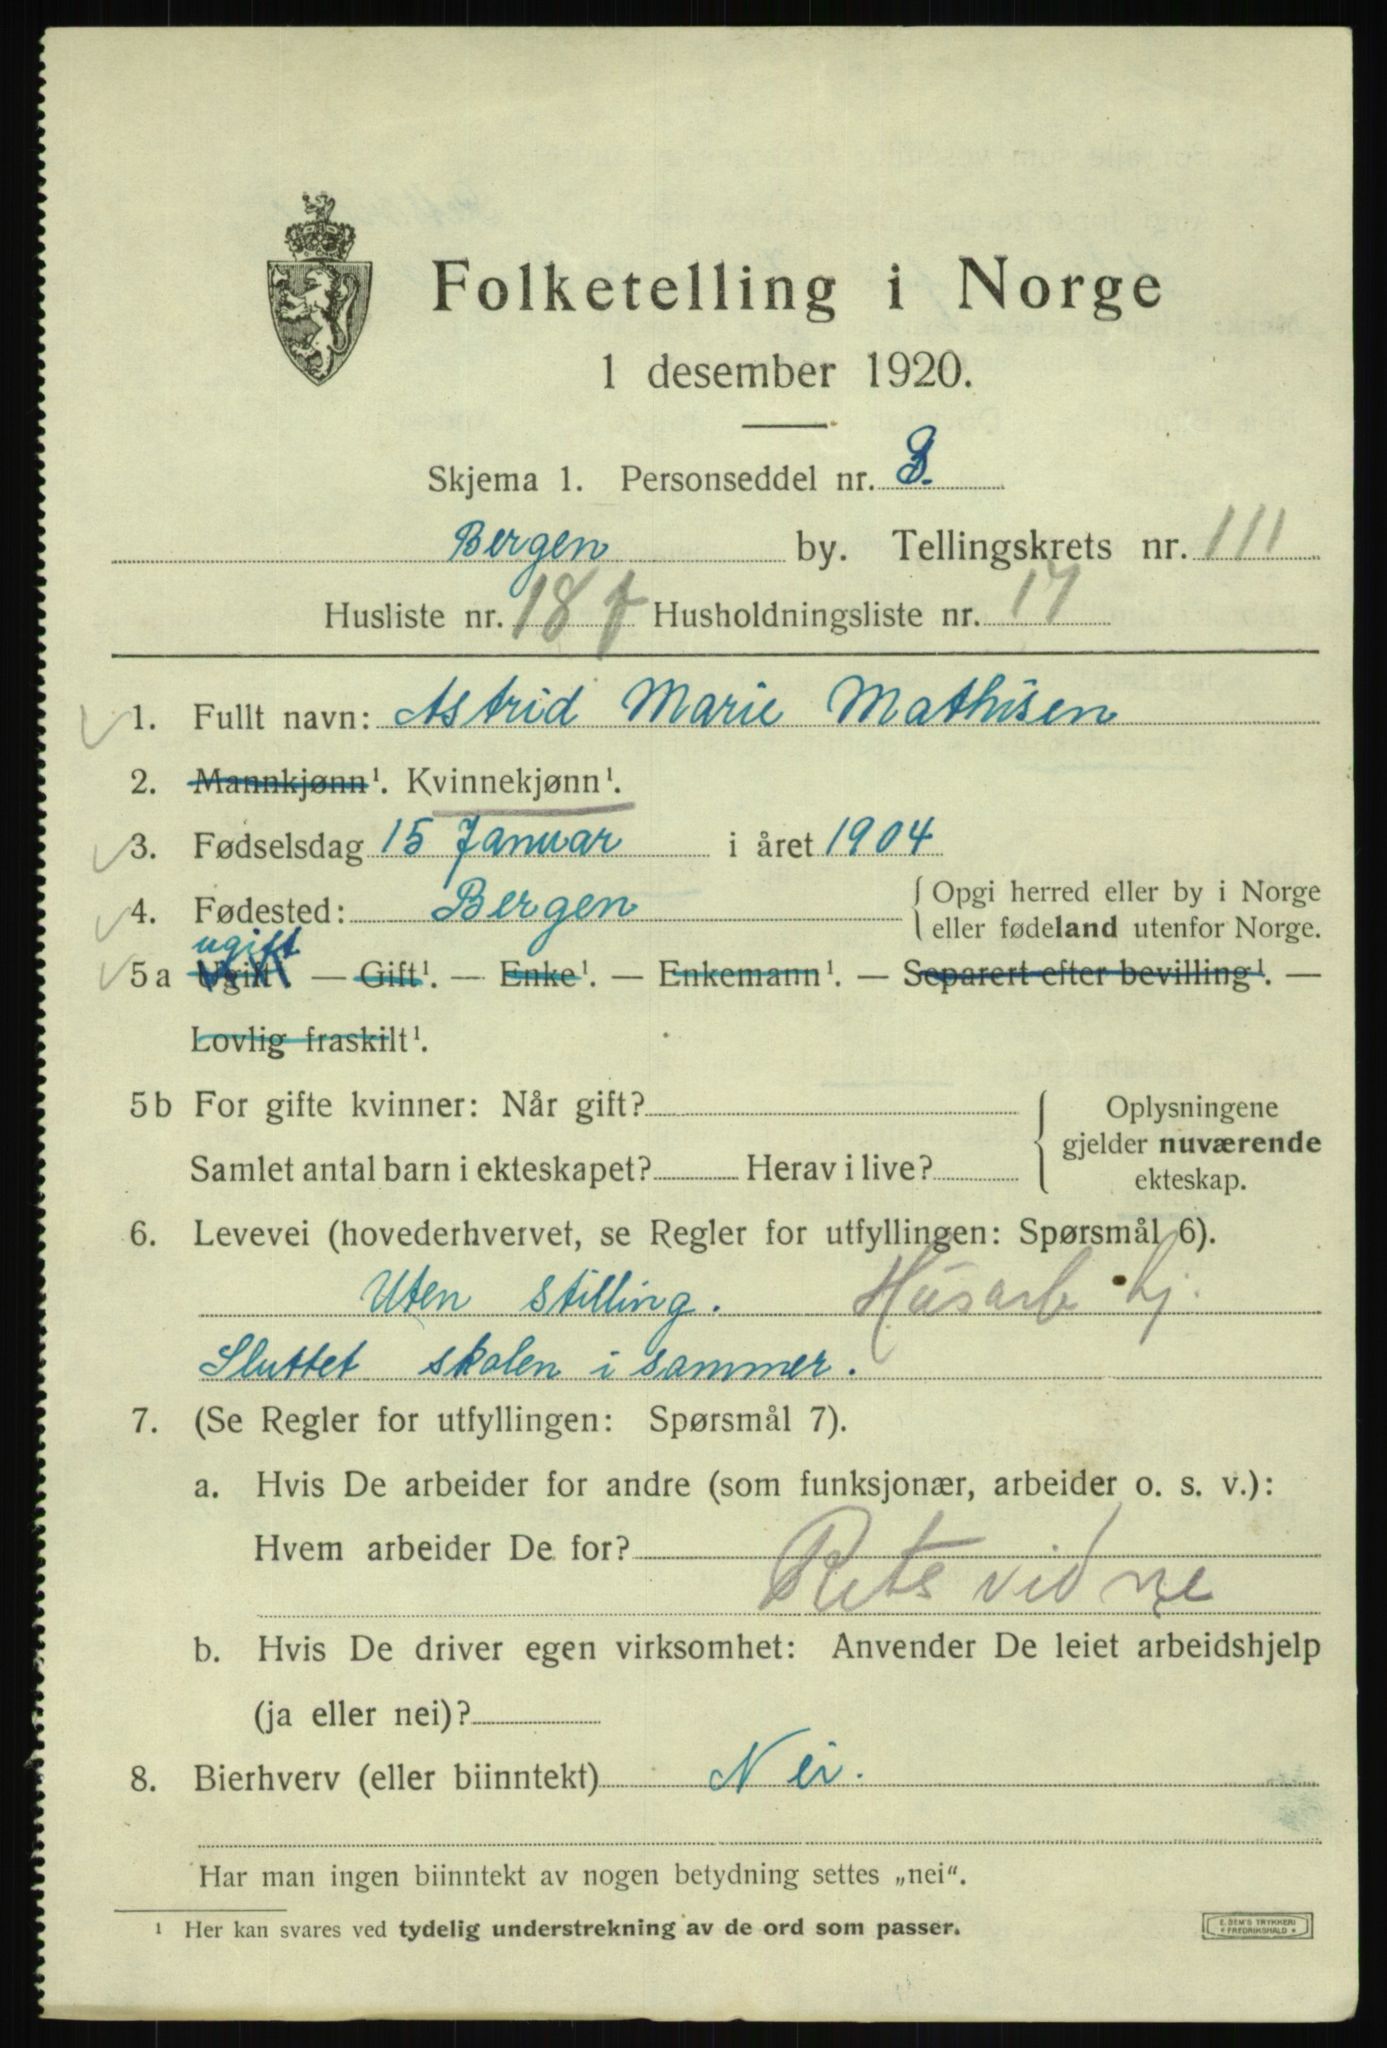 Folketelling i Norge
1 desember 1920.
Skjema 1. Personseddel nr. 3.
Bergen by. Tellingskrets nr. 111
Husliste nr. 187 Husholdningsliste nr. 17
1. Fullt navn: Astrid Marie Mathisen
2. Mannkjønn¹. Kvinnekjønn¹.
3. Fødselsdag 15 Januar i året 1904
4. Fødested: Bergen { Opgi herred eller by i Norge
eller fødeland utenfor Norge.
ugift
5a Ugift¹ — Gift¹. — Enke¹. — Enkemann¹. — Separert efter bevilling¹. —
Lovlig fraskilt¹.
5b For gifte kvinner: Når gift? Oplysningene
gjelder nuværende
Samlet antal barn i ekteskapet? Herav i live? ekteskap.
6. Levevei (hovederhvervet, se Regler for utfyllingen: Spørsmål 6).
Uten stilling. Husarb hj.
Sluttet skolen i sommer.
7. (Se Regler for utfyllingen: Spørsmål 7).
a. Hvis De arbeider for andre (som funksjonær, arbeider o. s. v.):
Hvem arbeider De for?
Rets vidne
b. Hvis De driver egen virksomhet: Anvender De leiet arbeidshjelp
(ja eller nei)?
8. Bierhverv (eller biinntekt) Nei.
Har man ingen biinntekt av nogen betydning settes „nei“.
¹ Her kan svares ved tydelig understrekning av de ord som passer.
E. SEM'S TRYKKERI
FREDRIKSHALD